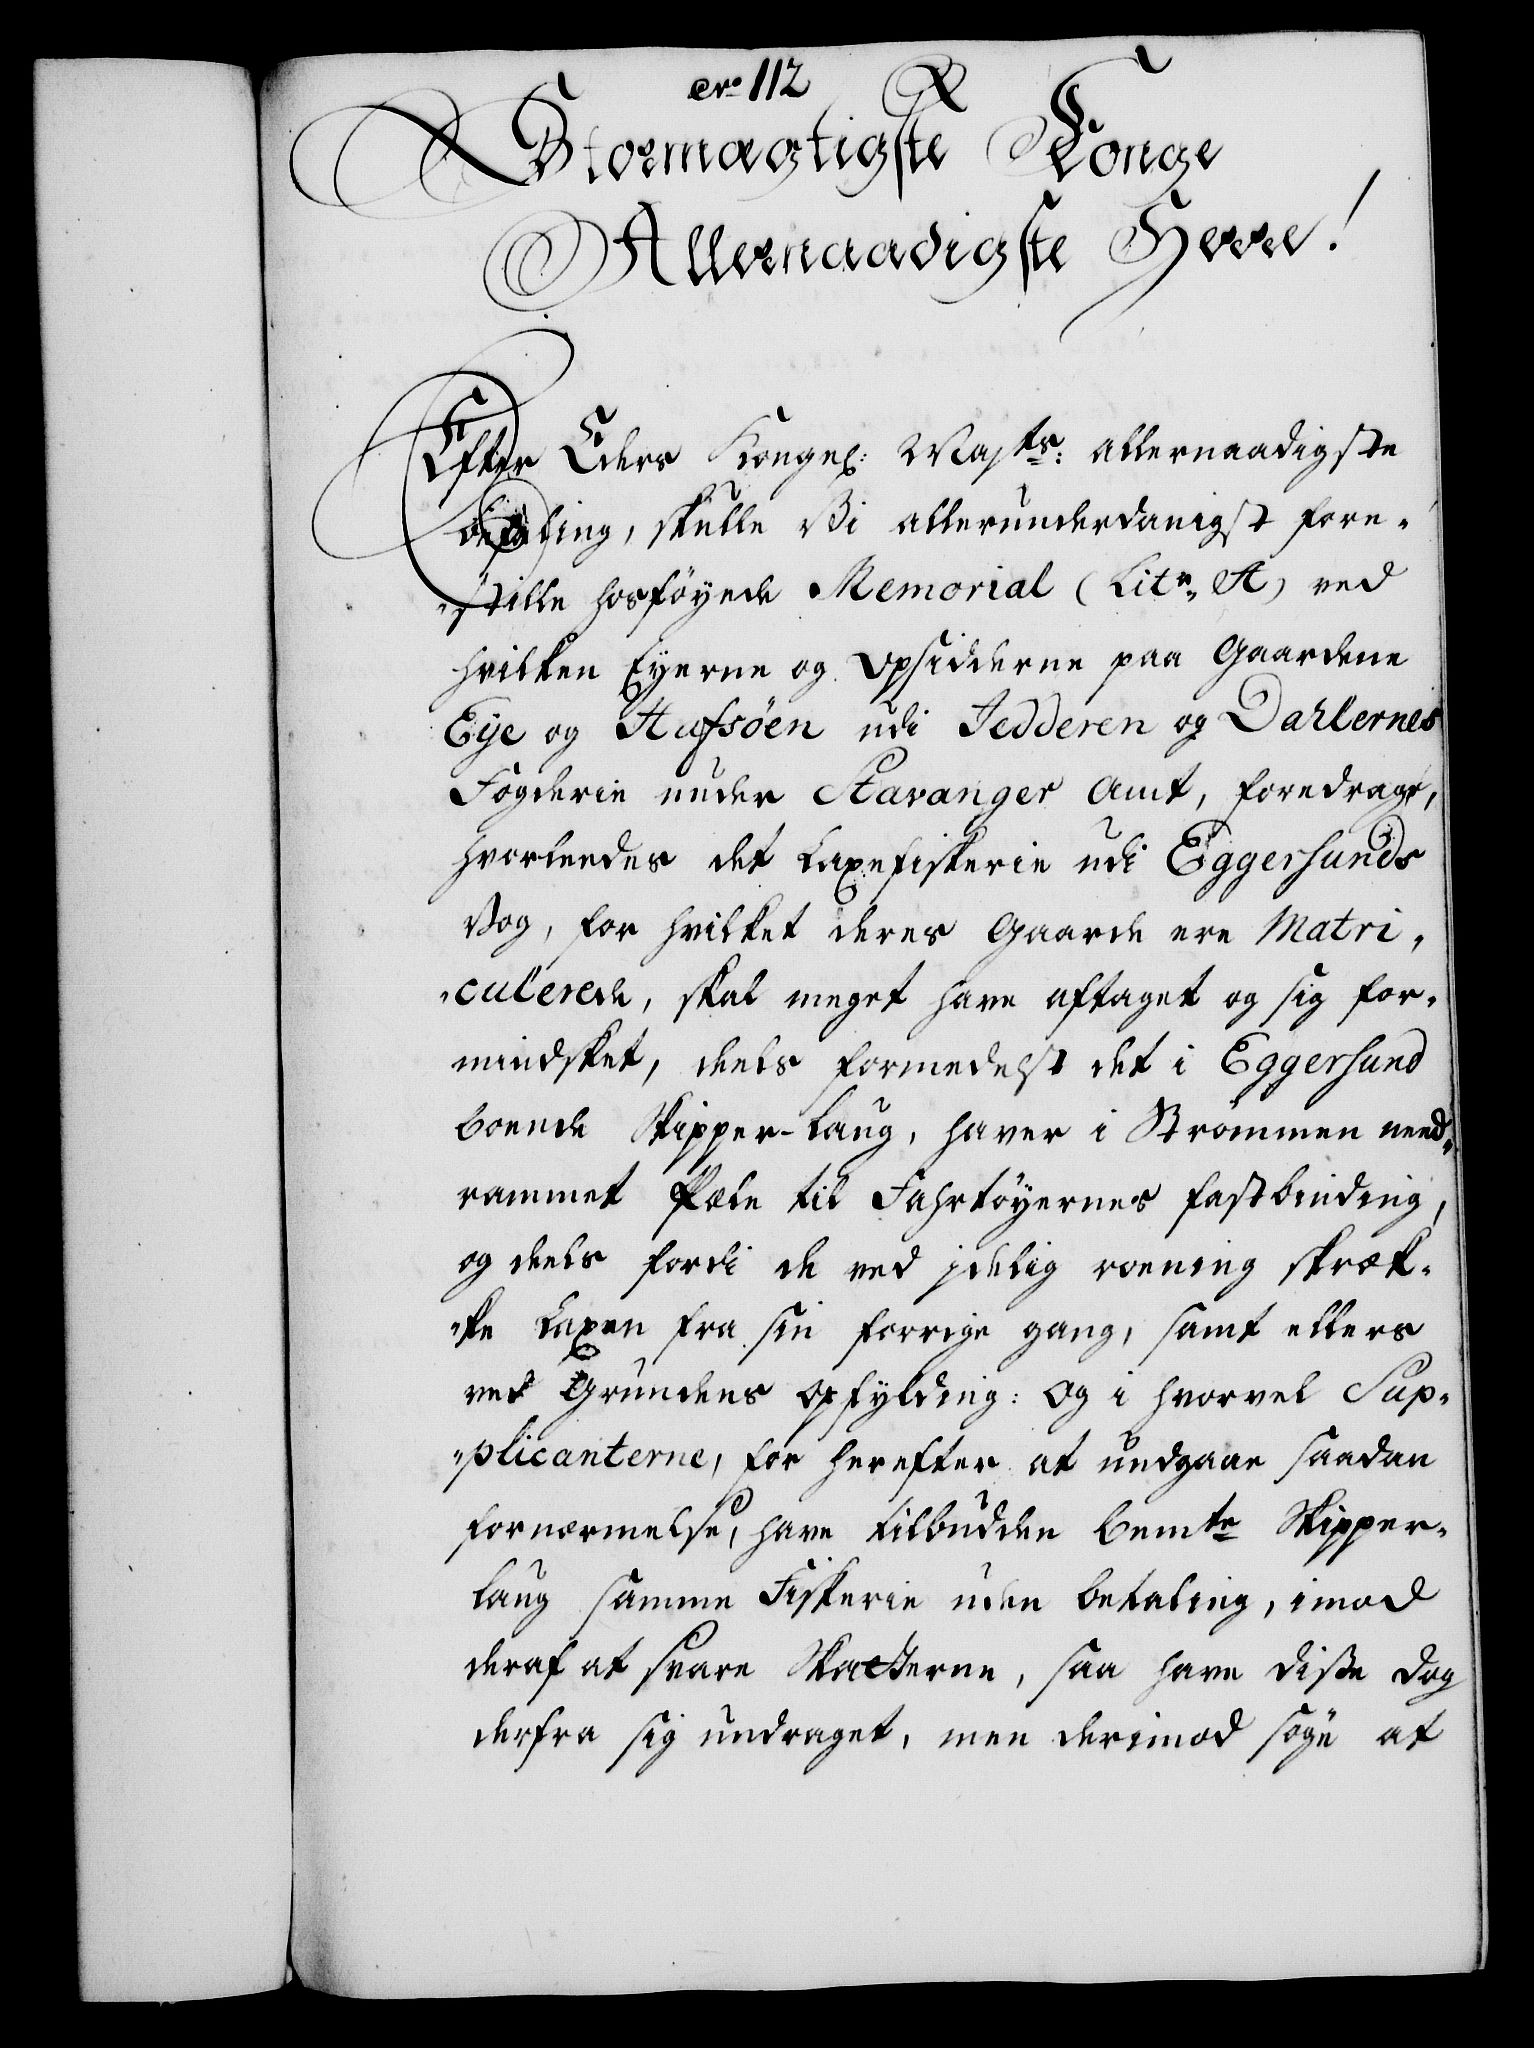 No. 112
Stormægtigste Konge
Allernaadigste Herre!
Efter Eders Kongel: Majts: allernaadigste
befaling, skulle Vi allerunderdanigst fore-
-stille hosföyede Memorial (Litr. A) ved
hvilken Eyerne og Opsidderne paa Gaardene
Eye og Hafsöen udi Jedderen og Dahlernes
Fogderie under Stavanger Amt, foredrage,
hvorleedes det Laxefiskerie udi Eggersunds
Vog, for hvilket deres Gaarde ere Matri-
-culerede, skal meget have aftaget og sig for-
mindsket, deels formedelst det i Eggersund
boende Skipper-Laug, haver i Strømmen need-
rammet Pæle til Fahrtöyernes fastbinding,
og deels fordi de ved jdelig roening skræk-
-ke Laxen fra sin forrige gang, samt ellers
ved Grundens opfylding: Og i hvorvel Sup-
-plicanterne, for herefter at undgaae saadan
fornærmelse, have tilbudden bemte Skipper-
laug samme Fiskerie uden betaling, imod
deraf at svare Skatterne, saa have disse dog
derfra sig undraget, men derimod søge at